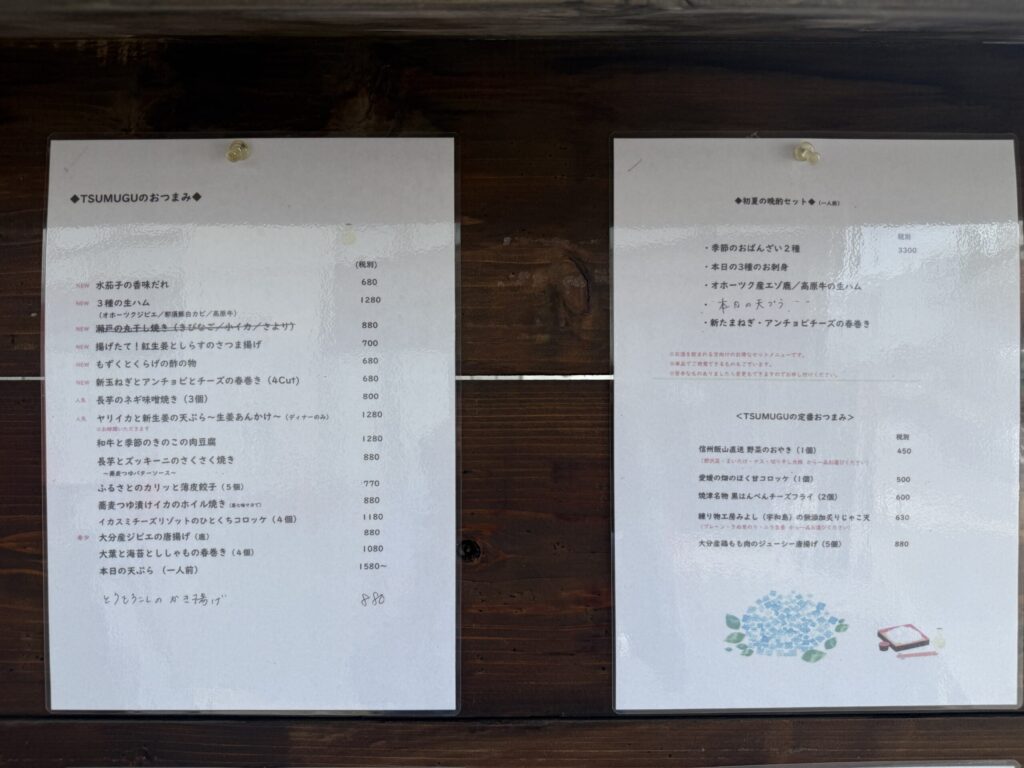 ◆TSUMUGUのおつまみ◆
(税別)
NEW 水茄子の香味だれ 680
NEW 3種の生ハム 1280
(オホーツクジビエ/那須豚白カビ/高原牛)
NEW 瀬戸の丸干し焼き(きびなご/小イカ/さより) 880
NEW 揚げたて!紅生姜としらすのさつま揚げ 700
NEW もずくとくらげの酢の物 680
NEW 新玉ねぎとアンチョビとチーズの春巻き(4Cut) 680
人気 長芋のネギ味噌焼き(3個) 800
人気 ヤリイカと新生姜の天ぷら〜生姜あんかけ〜(ディナーのみ) 1280
※お時間いただきます
和牛と季節のきのこの肉豆腐 1280
長芋とズッキーニのさくさく焼き 880
〜蕎麦つゆバターソース〜
ふるさとのカリッと薄皮餃子(5個) 770
蕎麦つゆ漬けイカのホイル焼き 880
イカスミチーズリゾットのひとくちコロッケ(4個) 1180
希少 大分産ジビエの唐揚げ(鹿) 880
大葉と海苔とししゃもの春巻き(4個) 1080
本日の天ぷら(一人前) 1580〜
とうもろこしの かき揚げ 880
◆初夏の晩酌セット◆(一人前)
税別
・季節のおばんざい2種 3300
・本日の3種のお刺身
・オホーツク産エゾ鹿/高原牛の生ハム
・本日の天ぷら
・新たまねぎ・アンチョビチーズの春巻き
※お酒を飲まれる方向けのお得なセットメニューです。
※単品でご用意できるものもございます。
※苦手なものありましたら変更もできますのでお申し付けください。
<TSUMUGUの定番おつまみ>
税別
信州飯山直送 野菜のおやき(1個) 450
(野沢菜・まいたけ・ナス・切り干し大根 から一品お選びください)
愛媛の畑のほく甘コロッケ(1個) 500
焼津名物 黒はんぺんチーズフライ(2個) 600
練り物工房みよし(宇和島)の無添加炙りじゃこ天 630
大分産鶏もも肉のジューシー唐揚げ(5個) 880